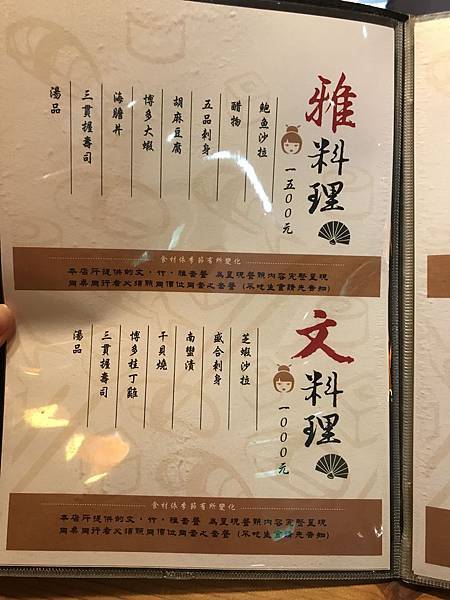 雅料理
一五００元
鮑魚沙拉
醋物
五品刺身
胡麻豆腐
博多大蝦
海膽丼
三貫握壽司
湯品
食材依季節有所變化
本店所提供的文，竹，雅套餐 為呈現餐期內容完整呈現
同桌同行者必須照同價位同套之套餐（不吃生食請先告知）
文料理
一０００元
芝蝦沙拉
盛合刺身
南蠻漬
干貝燒
博多桂丁雞
三貫握壽司
湯品
食材依季節有所變化
本店所提供的文，竹，雅套餐 為呈現餐期內容完整呈現
同桌同行者必須照同價位同套之套餐（不吃生食請先告知）